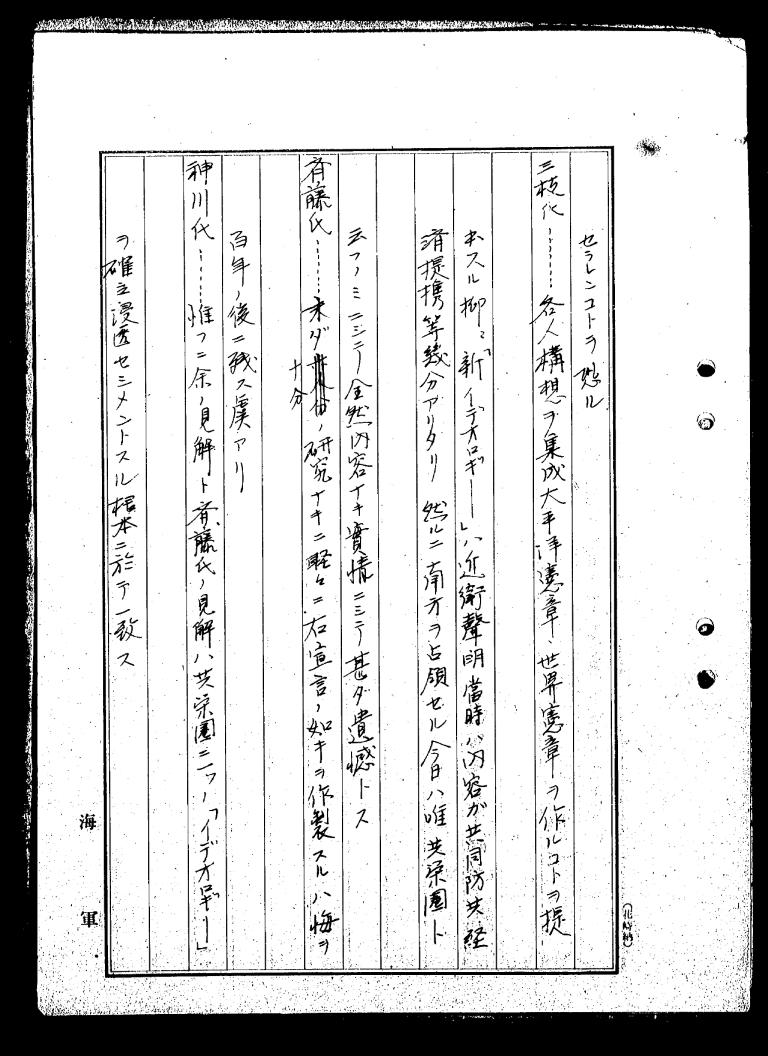 セラレンコトヲ恐ル
三枝氏………各人構想ヲ集成大平洋憲章、世界憲章ヲ作ルコトヲ提
本スル抑々「新イデオロギー」ハ近衛聲明當時ハ内容ガ共同防共経
済提携等幾分アリタリ 然ルニ南方ヲ占領セル今日ハ唯共栄圏ト
云フノミニシテ全然内容ナキ實情ニシテ甚ダ遺憾トス
斉藤氏………未ダ十分ノ研究ナキニ軽々ニ右宣言ノ如キヲ作製スルハ悔ヲ
百年ノ後ニ残ス虞アリ
神川氏………惟フニ余ノ見解ト斉藤氏ノ見解ハ共栄圏ニ一ツノ「イデオロギー」
ヲ確立浸透セシメントスル根本ニ於テ一致ス
海軍